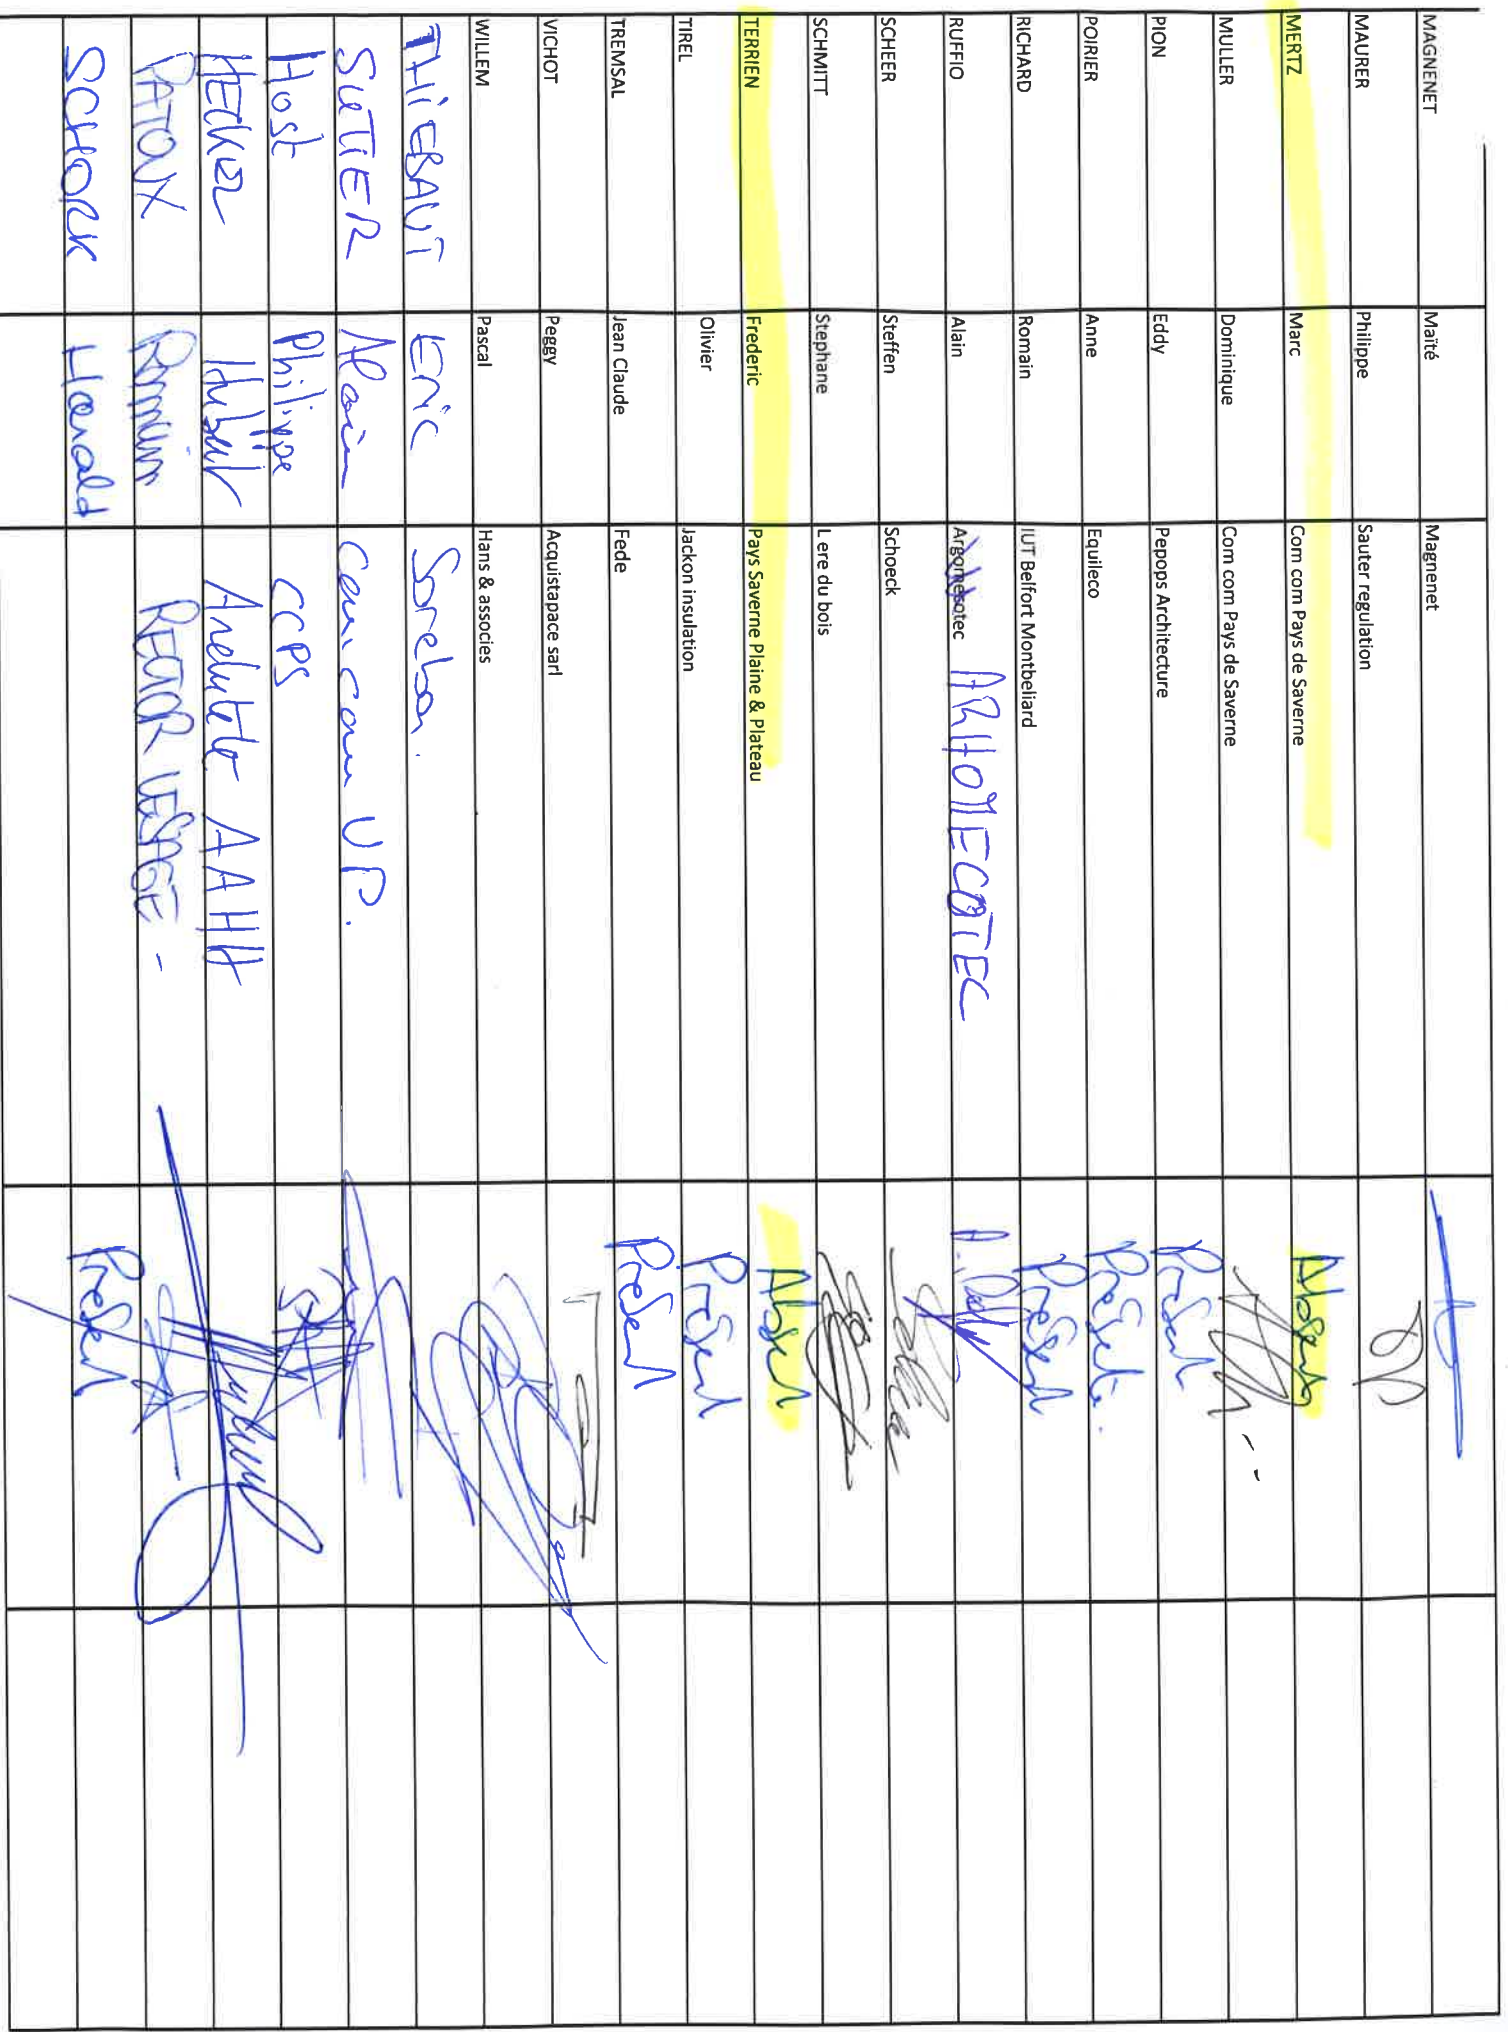 MAGNENET Maïté Magnenet
MAURER Philippe Sauter regulation
MERTZ Marc Com com Pays de Saverne Absent
MULLER Dominique Com com Pays de Saverne
PION Eddy Pepops Architecture Présent
POIRIER Anne Equileco Présente
RICHARD Romain IUT Belfort Montbeliard Présent
RUFFIO Alain Argomesotec ARHOMECOTEC
SCHEER Steffen Schoeck
SCHMITT Stephane L ere du bois
TERRIEN Frederic Pays Saverne Plaine & Plateau Absent
TIREL Olivier Jackon insulation Présent
TREMSAL Jean Claude Fede Présent
VICHOT Peggy Acquistapace sarl
WILLEM Pascal Hans & associes
THIEBAUT Eric Soreba.
SUTTER Alain Com com UP.
Host Philippe CCPS
HECKER Hubert AAHH
PATOUX Romain RECTOR LESAGE -
SCHORK Harald Présent